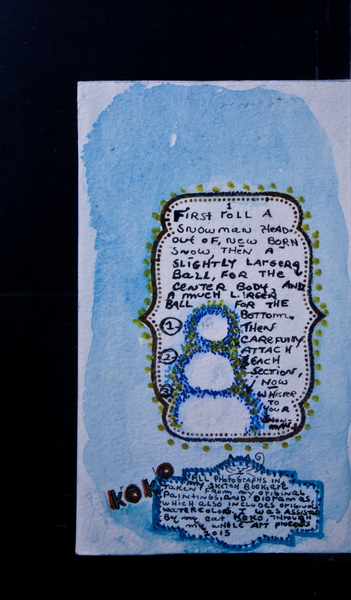 1
First roll a
Snowman head
out of, new born
snow, then a
slightly larger
Ball, for the
center body, and
a much larger
Ball for the
Bottom.
Then
carefully
attach
each
section,
"Now
whisper
to
your
snow-
man.
1
2
3
KOKO
All photographs in
my sketch book, are
taken from my original
paintings, and dioramas,
which also includes original
watercolors. I was assisted
by my cat KOKO, through
my whole art process
2015